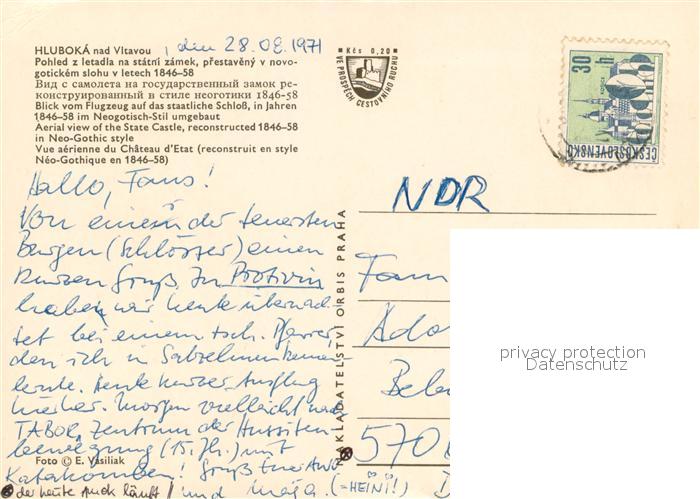 HLUBOKÁ nad Vltavou , den 28.08.1971
Pohled z letadla na státní zámek, přestavěný v novo-
gotickém slohu v letech 1846–58
Вид с самолета на государственный замок ре-
конструированный в стиле неоготики 1846-58
Blick vom Flugzeug auf das staatliche Schloß, in Jahren
1846–58 im Neogotisch-Stil umgebaut
Aerial view of the State Castle, reconstructed 1846–58
in Neo-Gothic style
Vue aérienne du Château d'Etat (reconstruit en style
Néo-Gothique en 1846–58)
Kčs 0,20
VE PROSPĚCH CESTOVNÍHO RUCHU
30 h
ČESKOSLOVENSKO
Hallo, Fams!
Von einem der teuersten
Burgen (Schlösser) einen
kurzen Gruß. In Protivin
haben wir heute übernach-
tet bei einem tsch. Pfarrer,
den ich in kennen-
lernte. Heute kurzer Ausflug
hierher. Morgen vielleicht nach
TABOR, Zentrum der Hussiten-
bewegung (15. Jh.) mit
Katakomben! Gruß
und (=HEINI!)
der heute auch läuft!
Foto © E. Vasiliak
NAKLADATELSTVÍ ORBIS PRAHA
NDR
Fam
Ado
Bela
570
D
privacy protection
Datenschutz